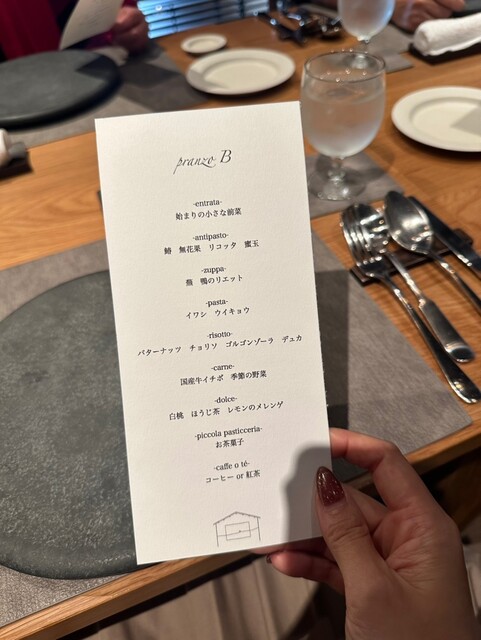 pranzo B
-entrata-
始まりの小さな前菜
-antipasto-
鰆 無花果 リコッタ 蜜玉
-zuppa-
蕪 鴨のリエット
-pasta-
イワシ ウイキョウ
-risotto-
バターナッツ チョリソ ゴルゴンゾーラ デュカ
-carne-
国産牛イチボ 季節の野菜
-dolce-
白桃 ほうじ茶 レモンのメレンゲ
-piccola pasticceria-
お茶菓子
-caffe o té-
コーヒー or 紅茶